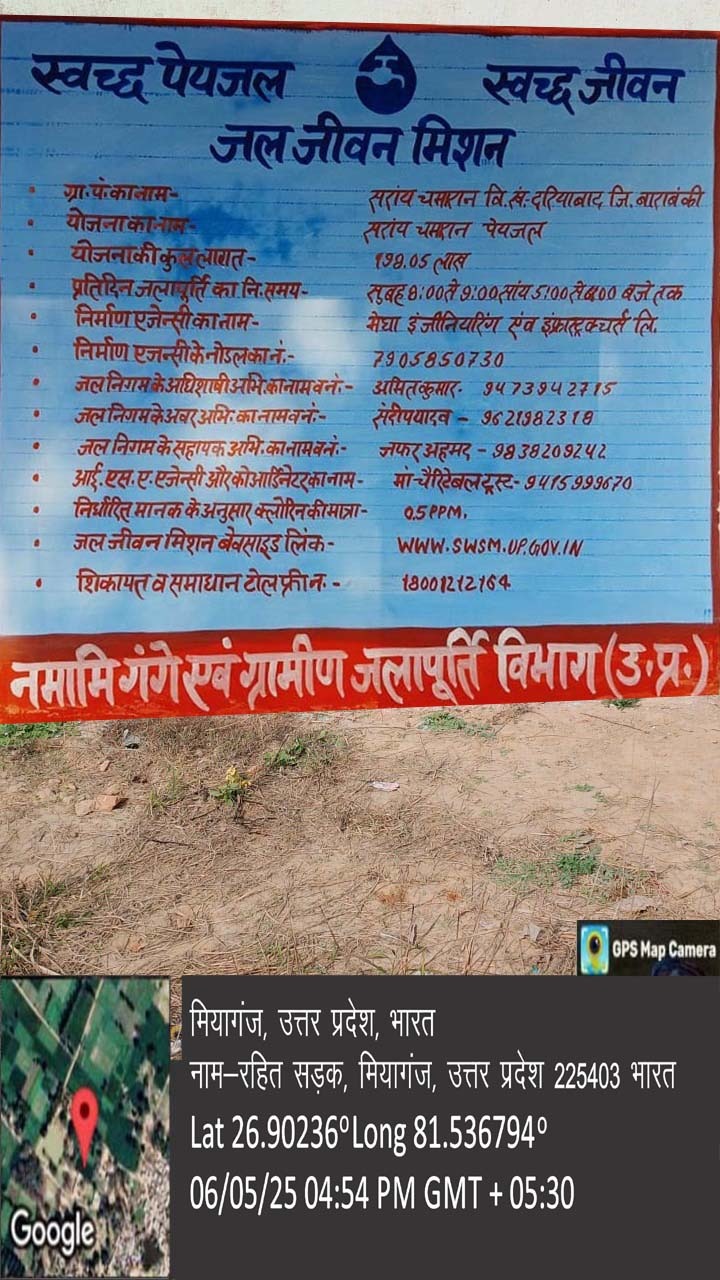 स्वच्छ पेयजल स्वच्छ जीवन
जल जीवन मिशन
• ग्रा.पं.का नाम- सरांय चमारान वि.खं-दरियाबाद जि. बाराबंकी
• योजना का नाम- सरांय चमारान पेयजल
• योजना की कुल लागत- 198.05 लाख
• प्रतिदिन जलापूर्ति का नि.समय- सुबह 8:00 से 9:00 सांय 5:00 से 6:00 बजे तक
• निर्माण एजेन्सी का नाम- मेघा इंजीनियरिंग एंव इंफ्रास्ट्रक्चर्स लि.
• निर्माण एजन्सी के नोडल का नं:- 7905850730
• जल निगम के अधिशाषी अभि.का नाम व नं:- अमित कुमार- 9473942715
• जल निगम के अवर अभि.का नाम व नं:- संदीप यादव - 9621982318
• जल निगम के सहायक अभि.का नाम व नं:- जफर अहमद - 9838209242
• आई.एस.ए.एजेन्सी और कोआर्डिनेटर का नाम- मां चैरिटेबल ट्रस्ट- 9415999670
• निर्धारित मानक के अनुसार क्लोरिन की मात्रा- 0.5 PPM.
• जल जीवन मिशन बेवसाइड लिंक- WWW.SWSM.UP.GOV.IN
• शिकायत व समाधान टोल फ्री नं.- 18001212164
नमामि गंगे एवं ग्रामीण जलापूर्ति विभाग (उ.प्र.)
GPS Map Camera
मियागंज, उत्तर प्रदेश, भारत
नाम–रहित सड़क, मियागंज, उत्तर प्रदेश 225403 भारत
Lat 26.90236° Long 81.536794°
06/05/25 04:54 PM GMT + 05:30
Google